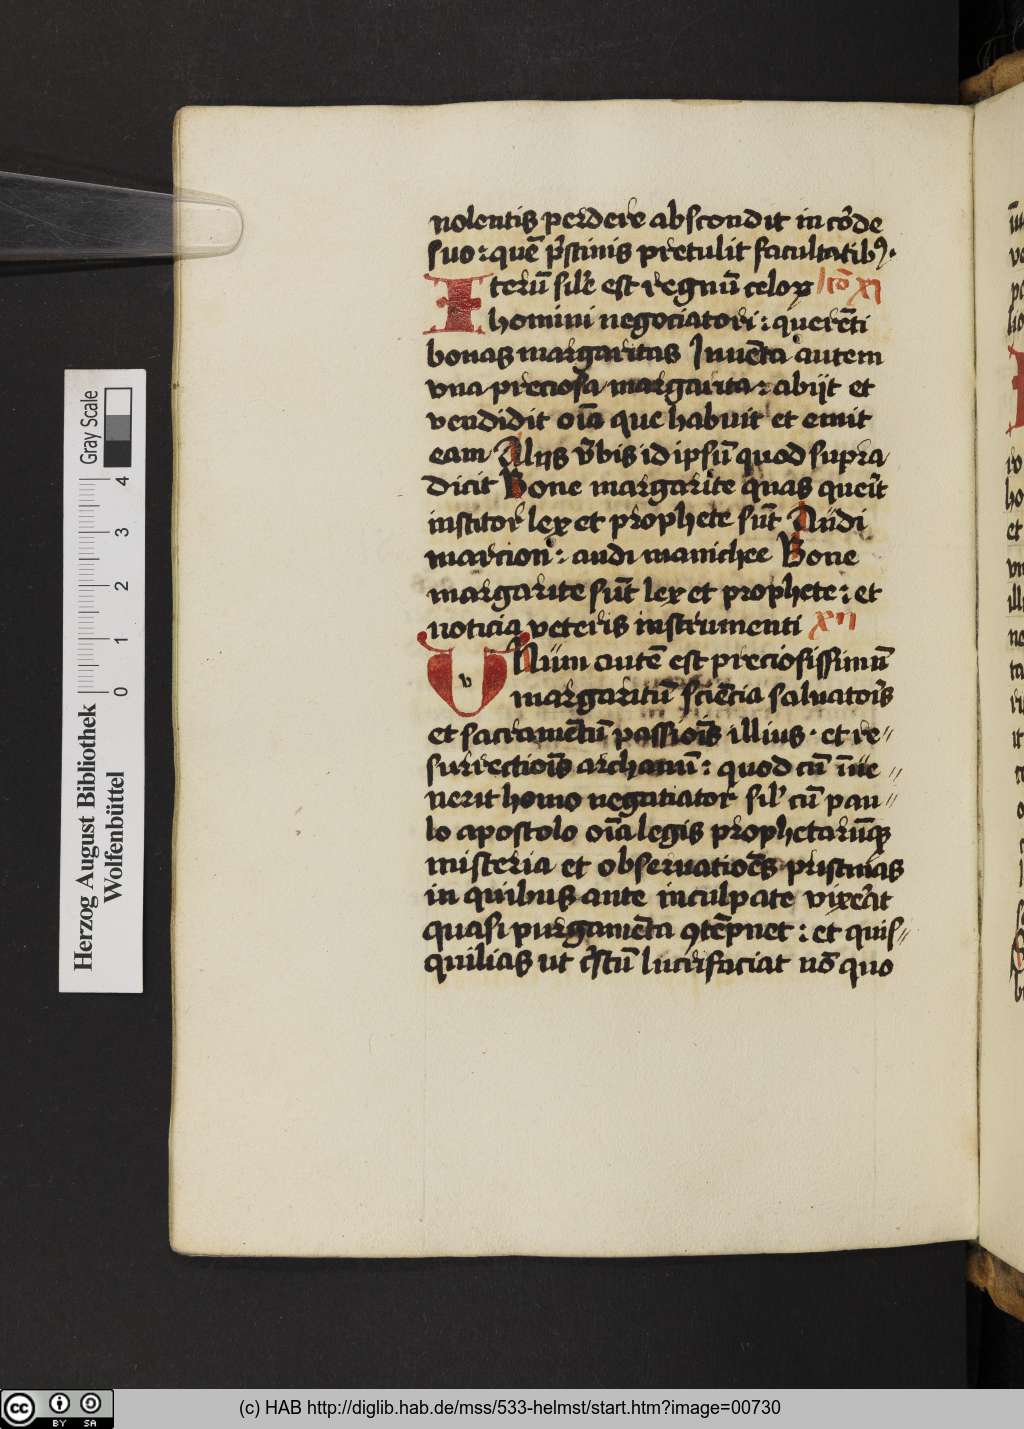 nolentis perdere abscondit in cōde
suo : quē p̄stinis pretulit facultatibꝰ ·
Iterū sil'r est regnū celoꝝ l̄cō xi
homini negociatori : querēti
bonas margaritas Inuēta autem
vna preciosa margarita : abijt et
vendidit oīa que habuit et emit
eam Alijs v̄bis id ipsū quod supra
dicit Bone margarite quas que̅it
institor lex et prophete sūt Audi
marcion : audi manichee Bone
margarite sūt lex et prophete : et
noticia veteris instrumenti xii
v
VNum autē est preciosissimū
margaritū sciētia saluatoīs
et sacramētū passioīs illius · et re〃
surrectioīs archanū : quod cū īue〃
nerit homo negatiator sil' cū pau〃
lo apostolo oīa legis prophetarūqꝫ
misteria et obseruatioēs pristinas
in quibus ante inculpate vixe̅it
quasi purgamēta ꝯtēpnet : et quis〃
quilias ut c̄stū lucrifaciat nō quo
Herzog August Bibliothek
Wolfenbüttel
0 1 2 3 4
Gray Scale
cc BY SA
(c) HAB http://diglib.hab.de/mss/533-helmst/start.htm?image=00730